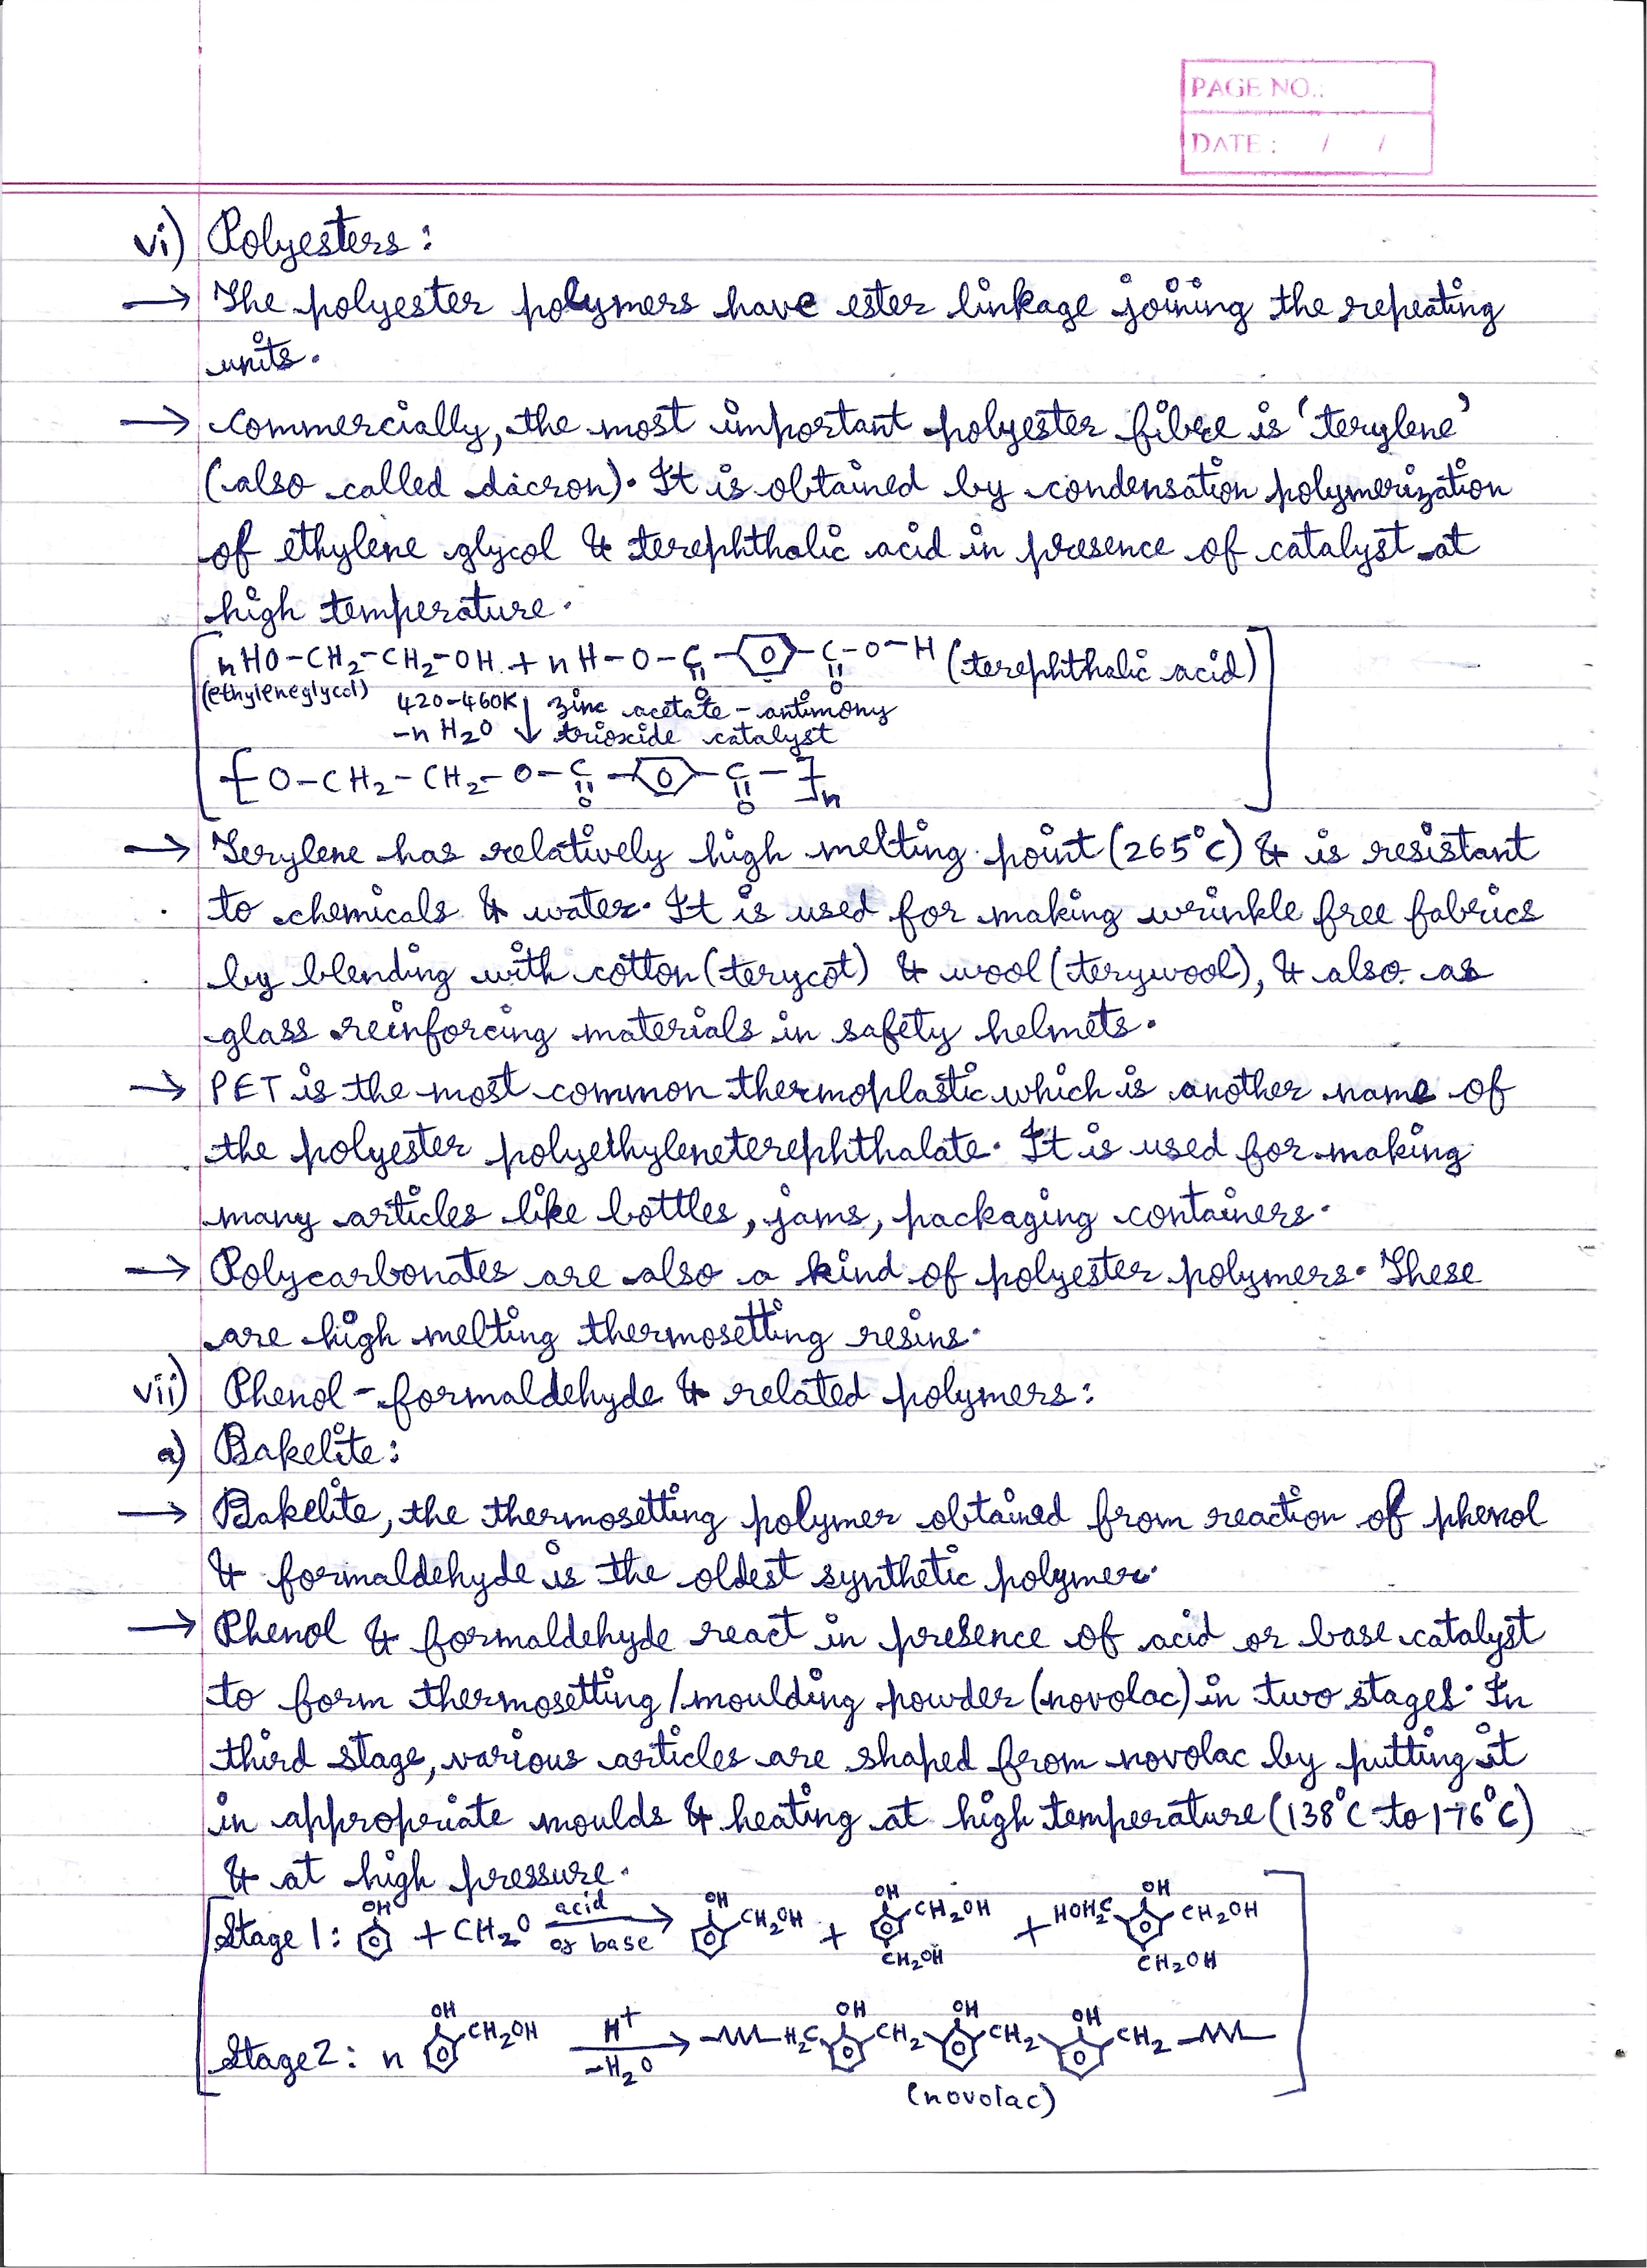 PAGE NO.:
DATE : / /
vi) Polyesters:
→ The polyester polymers have ester linkage joining the repeating
units.
→ Commercially, the most important polyester fibre is 'terylene'
(also called dacron). It is obtained by condensation polymerization
of ethylene glycol & terephthalic acid in presence of catalyst at
high temperature.
nHO-CH2-CH2-OH + nH-O-C-⌬-C-O-H (terephthalic acid)
O O
(ethyleneglycol) 420-460K ↓ zinc acetate - antimony
-n H2O trioxide catalyst
[O-CH2-CH2-O-C-⌬-C-]n
O O
→ Terylene has relatively high melting point (265°C) & is resistant
to chemicals & water. It is used for making wrinkle free fabrics
by blending with cotton (terycot) & wool (terywool), & also as
glass reinforcing materials in safety helmets.
→ PET is the most common thermoplastic which is another name of
the polyester polyethyleneterephthalate. It is used for making
many articles like bottles, jams, packaging containers.
→ Polycarbonates are also a kind of polyester polymers. These
are high melting thermosetting resins.
vii) Phenol-formaldehyde & related polymers:
a) Bakelite:
→ Bakelite, the thermosetting polymer obtained from reaction of phenol
& formaldehyde is the oldest synthetic polymer.
→ Phenol & formaldehyde react in presence of acid or base catalyst
to form thermosetting/moulding powder (novolac) in two stages. In
third stage, various articles are shaped from novolac by putting it
in appropriate moulds & heating at high temperature (138°C to 176°C)
& at high pressure.
OH acid OH OH OH
Stage 1: ⌬ + CH2O → ⌬ CH2OH + ⌬ CH2OH + HOH2C ⌬ CH2OH
or base CH2OH CH2OH
OH H+ OH OH OH
Stage 2: n ⌬ CH2OH → H2C ⌬ CH2 ⌬ CH2 ⌬ CH2
-H2O
(novolac)